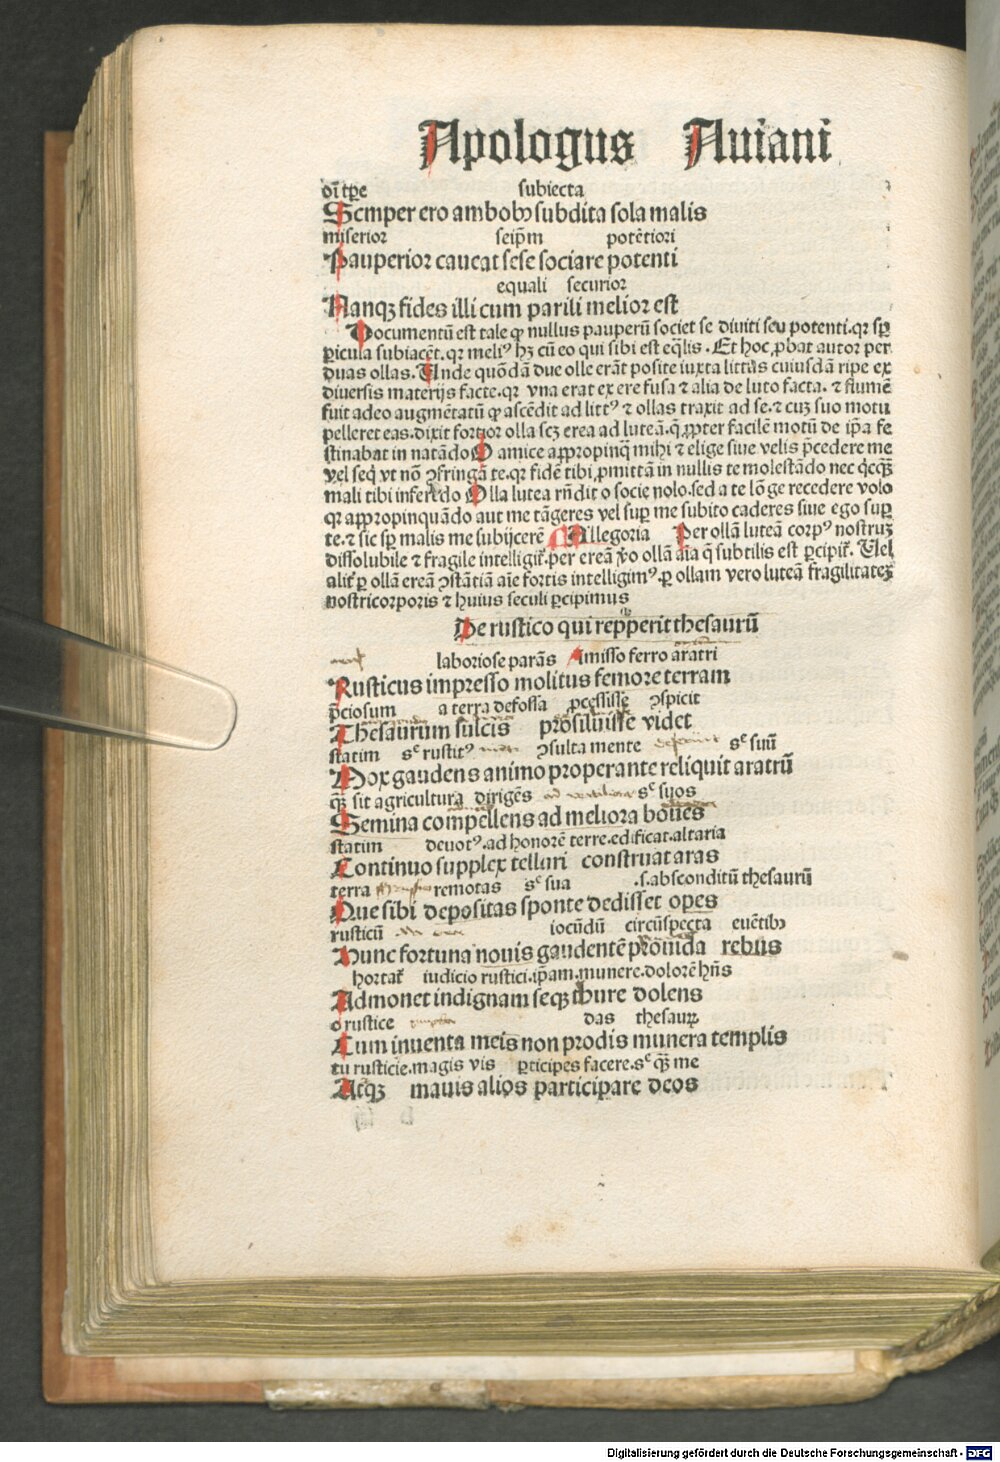 Apologus Auiani
oī tꝑe subiecta
Semper ero ambobꝰ subdita sola malis
miserior seip̄m potētiori
Pauperior caueat sese sociare potenti
equali securior
Nanqꝫ fides illi cum parili melior est
Documentū est tale ꝙ nullus pauperū societ se diuiti seu potenti.qꝛ sꝑ
ꝑicula subiacēt.qꝛ meliꝰ hꝫ cū eo qui sibi est eq̄lis. Et hoc ꝓbat autor per
duas ollas. Unde quōdā due olle erāt posite iuxta littꝰ cuiusdā ripe ex
diuersis materijs facte.qꝛ vna erat ex ere fusa ⁊ alia de luto facta. ⁊ flumē
fuit adeo augmētatū ꝙ ascēdit ad littꝰ ⁊ ollas traxit ad se.⁊ cuꝫ suo motu
pelleret eas.dixit fortior olla scꝫ erea ad luteā.q̄ ꝓpter facilē motū de ip̄a fe
stinabat in natādo O amice appropinq̄ mihi ⁊ elige siue velis p̄cedere me
vel seq̄ vt nō ꝯfringā te.qꝛ fidē tibi ꝓmittā in nullis te molestādo nec q̄cqꝫ
mali tibi inferēdo Olla lutea rn̄dit o socie nolo.sed a te lōge recedere volo
qꝛ appropinquādo aut me tāgeres vel suꝑ me subito caderes siue ego suꝑ
te.⁊ sic sꝑ malis me subijcerē Allegoria Per ollā luteā corpꝰ nostruꝫ
dissolubile ⁊ fragile intelligit̄.per ereā v̄o ollā aīa q̄ subtilis est ꝑcipit̄. Uel
alit̄ ꝑ ollā ereā ꝯstātiā aīe fortis intelligimꝰ.ꝑ ollam vero luteā fragilitateꝫ
nostri corporis ⁊ huius seculi ꝑcipimus
De rustico qui repperit thesaurū
laboriose parās Amisso ferro aratri
Rusticus impresso molitus femore terram
p̄ciosum a terra defossa ꝓcessisse ꝯspicit
Thesaurum sulcis prosiluisse videt
statim sᶜ rusticꝰ ꝯsulta mente sᶜ suū
Mox gaudens animo properante reliquit aratrū
qꝫ sit agricultura dirigēs sᶜ suos
Semina compellens ad meliora boues
statim deuotꝰ.ad honorē terre.edificat.altaria
Continuo supplex telluri construat aras
terra remotas sᶜ sua .s.absconditū thesaurū
Que sibi depositas sponte dedisset opes
rusticū iocūdū circūspecta euētibꝰ
Hunc fortuna nouis gaudentē prouida rebus
hortat̄ iudicio rustici.ip̄am.munere.dolorē hn̄s
Admonet indignam seqꝫ thure dolens
o rustice das thesauꝝ
Cum inuenta meis non prodis munera templis
tu rusticie.magis vis ꝑticipes facere.sᶜ qꝫ me
Atqꝫ mauis alios participare deos
Digitalisierung gefördert durch die Deutsche Forschungsgemeinschaft - DFG